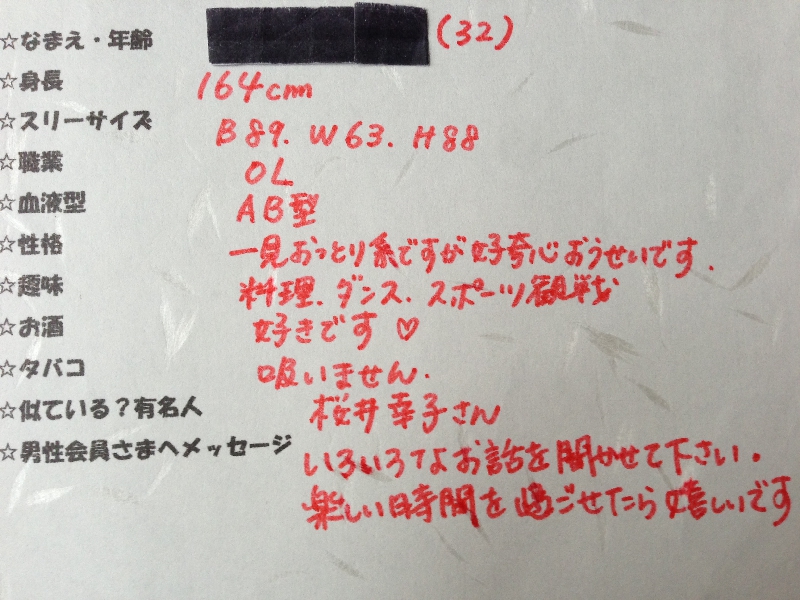 ☆なまえ・年齢 (32)
☆身長 164cm
☆スリーサイズ B89. W63. H88
☆職業 OL
☆血液型 AB型
☆性格 一見おっとり系ですが好奇心おうせいです.
☆趣味 料理. ダンス. スポーツ観戦
☆お酒 好きです♡
☆タバコ 吸いません.
☆似ている?有名人 桜井幸子さん
☆男性会員さまへメッセージ いろいろなお話を聞かせて下さい。
楽しい時間を過ごせたら嬉しいです